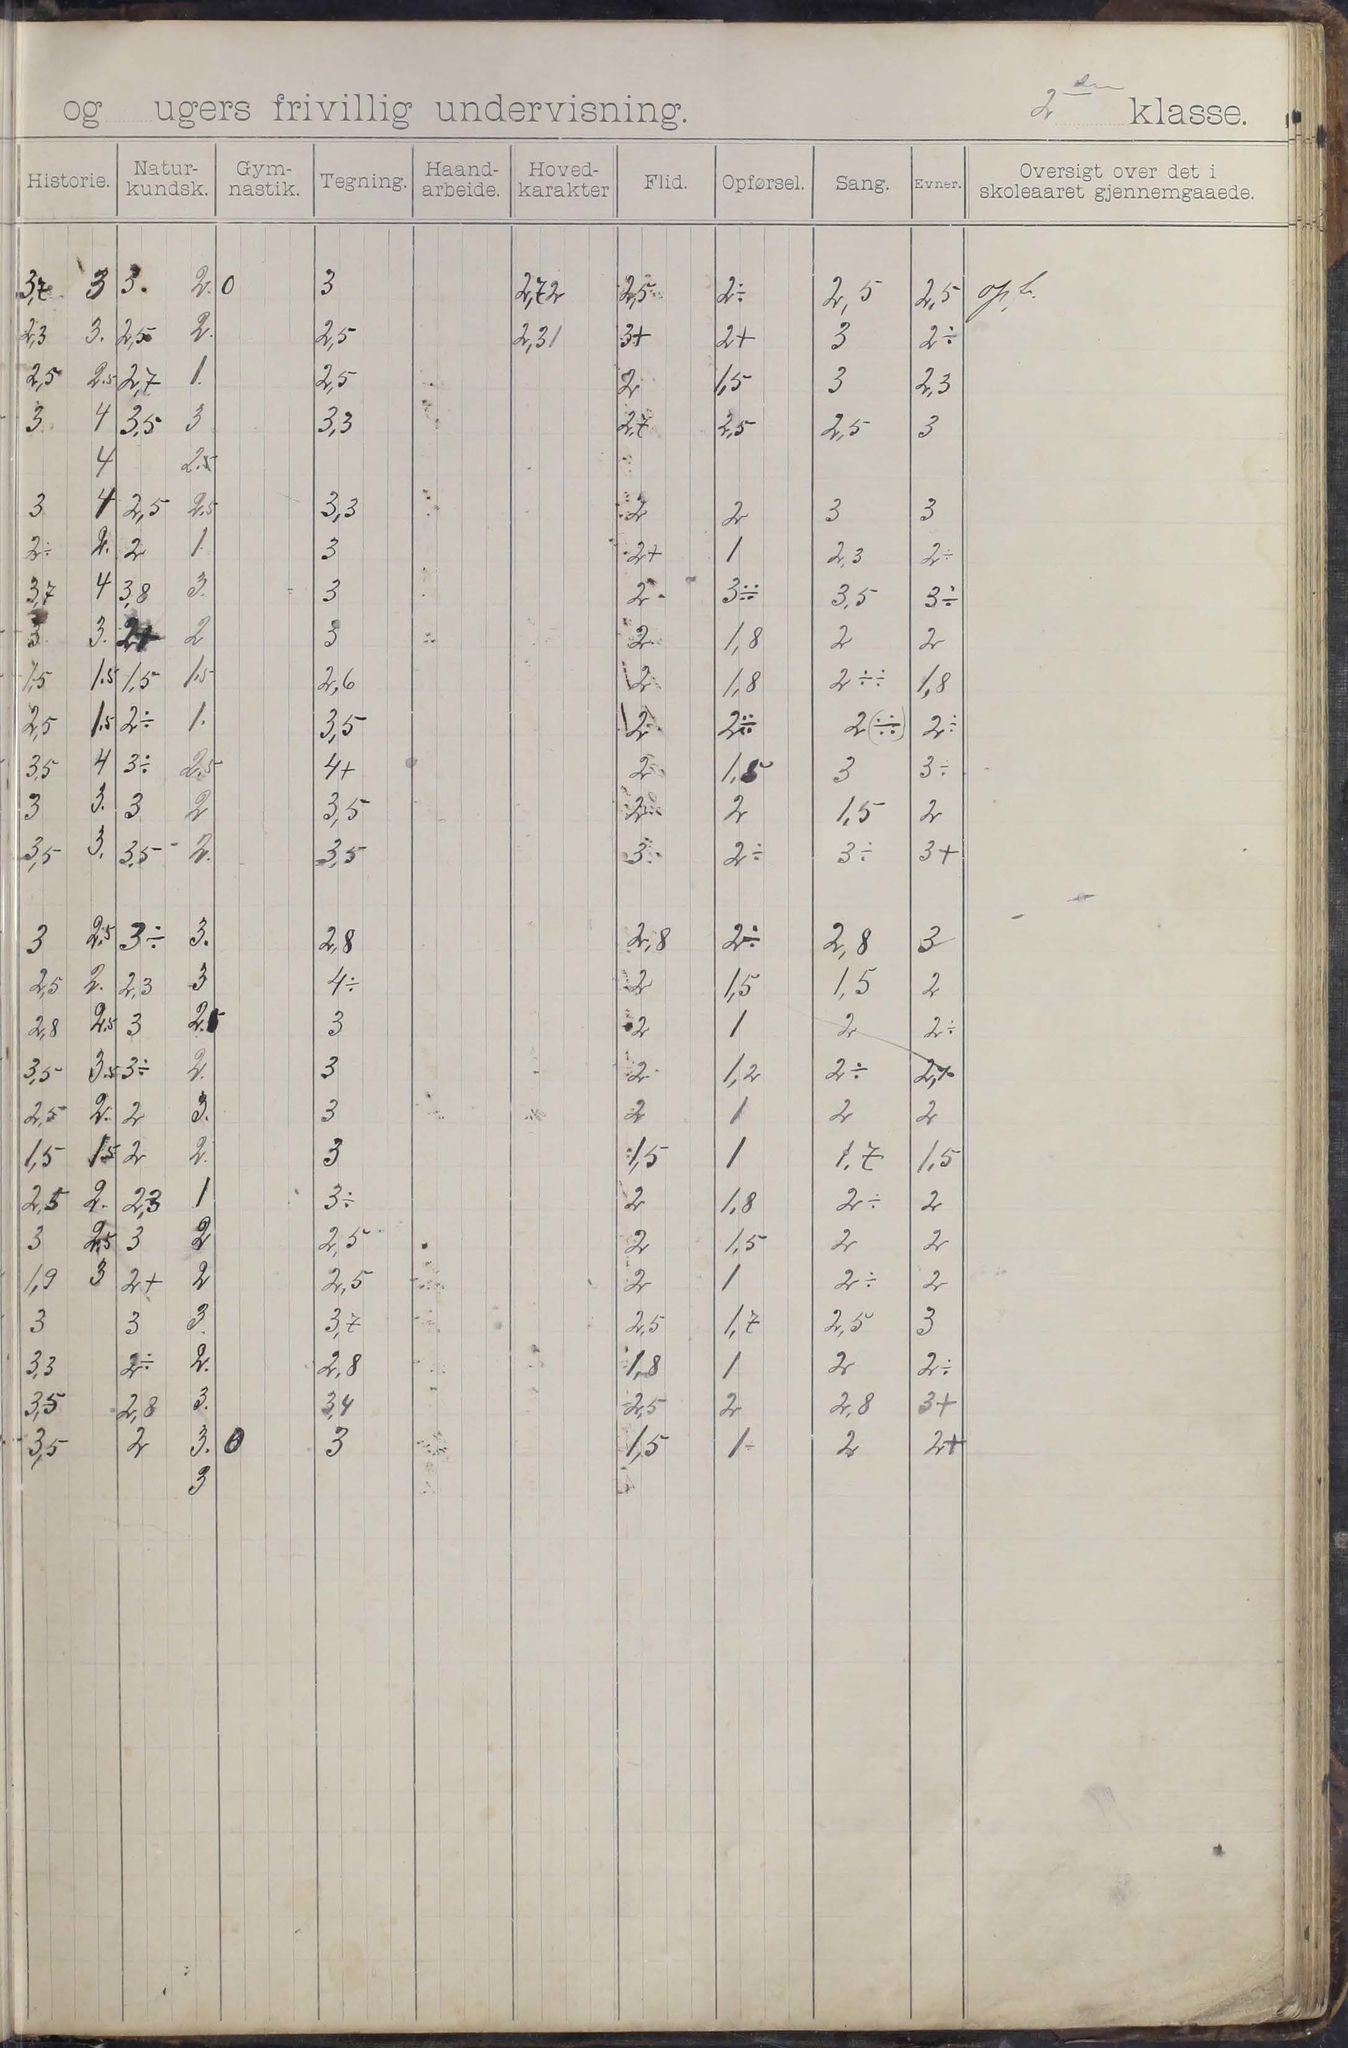 og ugers frivillig undervisning. 2den klasse.
Historie. Natur-kundsk. Gym-nastik. Tegning. Haand-arbeide. Hoved-karakter Flid. Opførsel. Sang. Evner. Oversigt over det i skoleaaret gjennemgaaede.
3,7 3 3. 2. 0 3 2,72 2,5 2÷ 2,5 2,5
2,3 3. 2,5 2. 2,5 2,31 3+ 2+ 3 2÷
2,5 2.5 2,7 1. 2,5 2 1,5 3 2,3
3 4 3,5 3 3,3 2,7 2,5 2,5 3
4 2.5
3 4 2,5 2.5 3,3 2 2 3 3
2÷ 2. 2 1. 3 2+ 1 2,3 2÷
3,7 4 3,8 3. 3 2 3÷÷ 3,5 3÷
3 3. 2+ 2 3 2 1,8 2 2
1,5 1.5 1,5 1.5 2,6 2 1,8 2÷÷ 1,8
2,5 1.5 2÷ 1. 3,5 2 2÷÷ 2(÷÷) 2÷
3,5 4 3÷ 2,5 4+ 2 1,5 3 3÷
3 3. 3 2 3,5 2 2 1,5 2
3,5 3. 3,5 2. 3,5 3 2÷ 3÷ 3+
3 2.5 3÷ 3. 2,8 2,8 2÷ 2,8 3
2,5 2. 2,3 3 4÷ 2 1,5 1,5 2
2,8 2.5 3 2.5 3 2 1 2 2÷
3,5 3.5 3÷ 2. 3 2 1,2 2÷
2,5 2. 2 3. 3 2 1 2 2
1,5 1.5 2 2. 3 1,5 1 1,7 1,5
2,5 2. 2,3 1 3÷ 2 1,8 2÷ 2
3 2.5 3 2 2,5 2 1,5 2 2
1,9 3 2+ 2 2,5 2 1 2÷ 2
3 3 3. 3,7 2,5 1,7 2,5 3
3,3 2÷ 2. 2,8 1,8 1 2 2÷
3,5 2,8 3. 3,4 2,5 2 2,8 3+
3,5 2 3. 0 3 1,5 1 2 2+
3